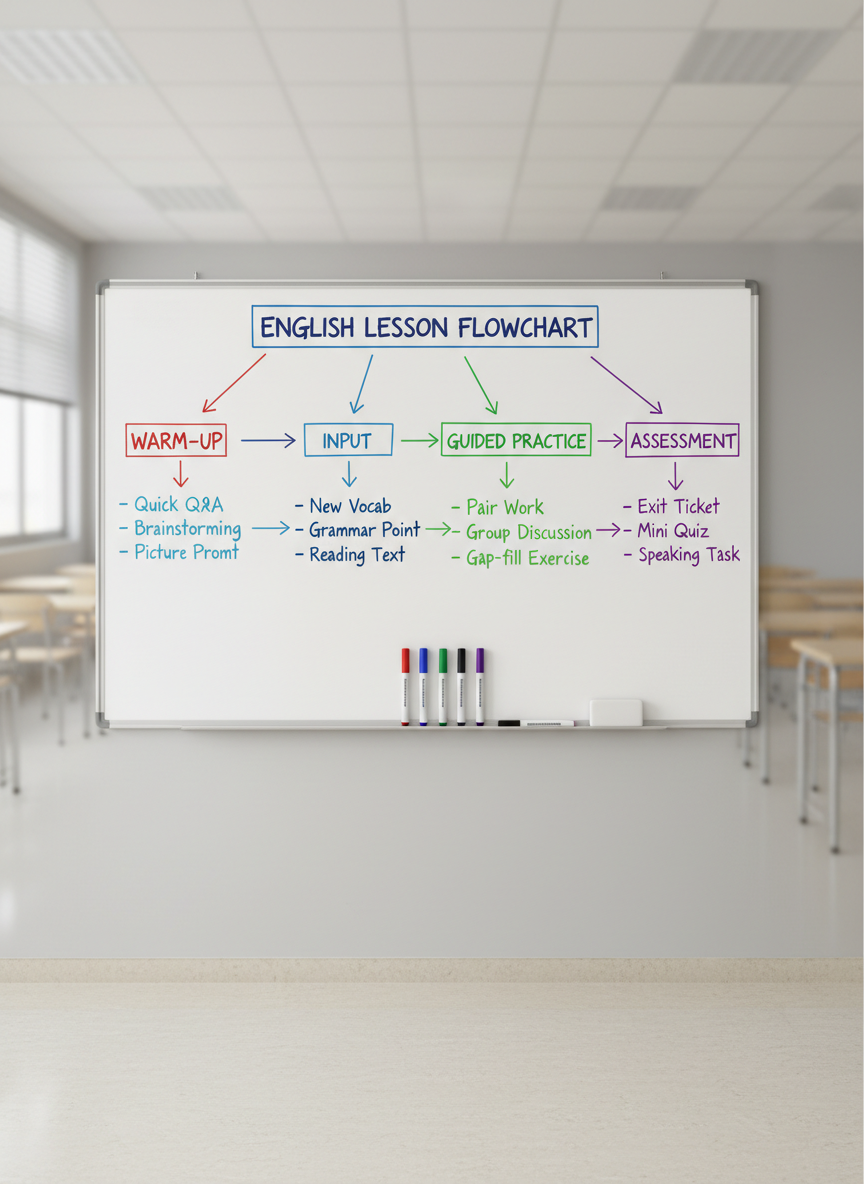 ENGLISH LESSON FLOWCHART
WARM-UP
INPUT
GUIDED PRACTICE
ASSESSMENT
- Quick Q&A
- Brainstorming
- Picture Promt
- New Vocab
- Grammar Point
- Reading Text
- Pair Work
- Group Discussion
- Gap-fill Exercise
- Exit Ticket
- Mini Quiz
- Speaking Task